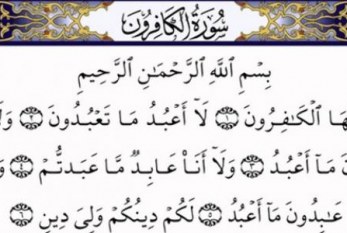 سُورَةُ الْكَافِرُونَ
بِسْمِ اللَّهِ الرَّحْمَٰنِ الرَّحِيمِ
هَا الْكَافِرُونَ ١ لَا أَعْبُدُ مَا تَعْبُدُونَ ٢ وَلَا
مَا أَعْبُدُ ٣ وَلَا أَنَا عَابِدٌ مَّا عَبَدتُّمْ ٤
عَابِدُونَ مَا أَعْبُدُ ٥ لَكُمْ دِينُكُمْ وَلِيَ دِينِ ٦